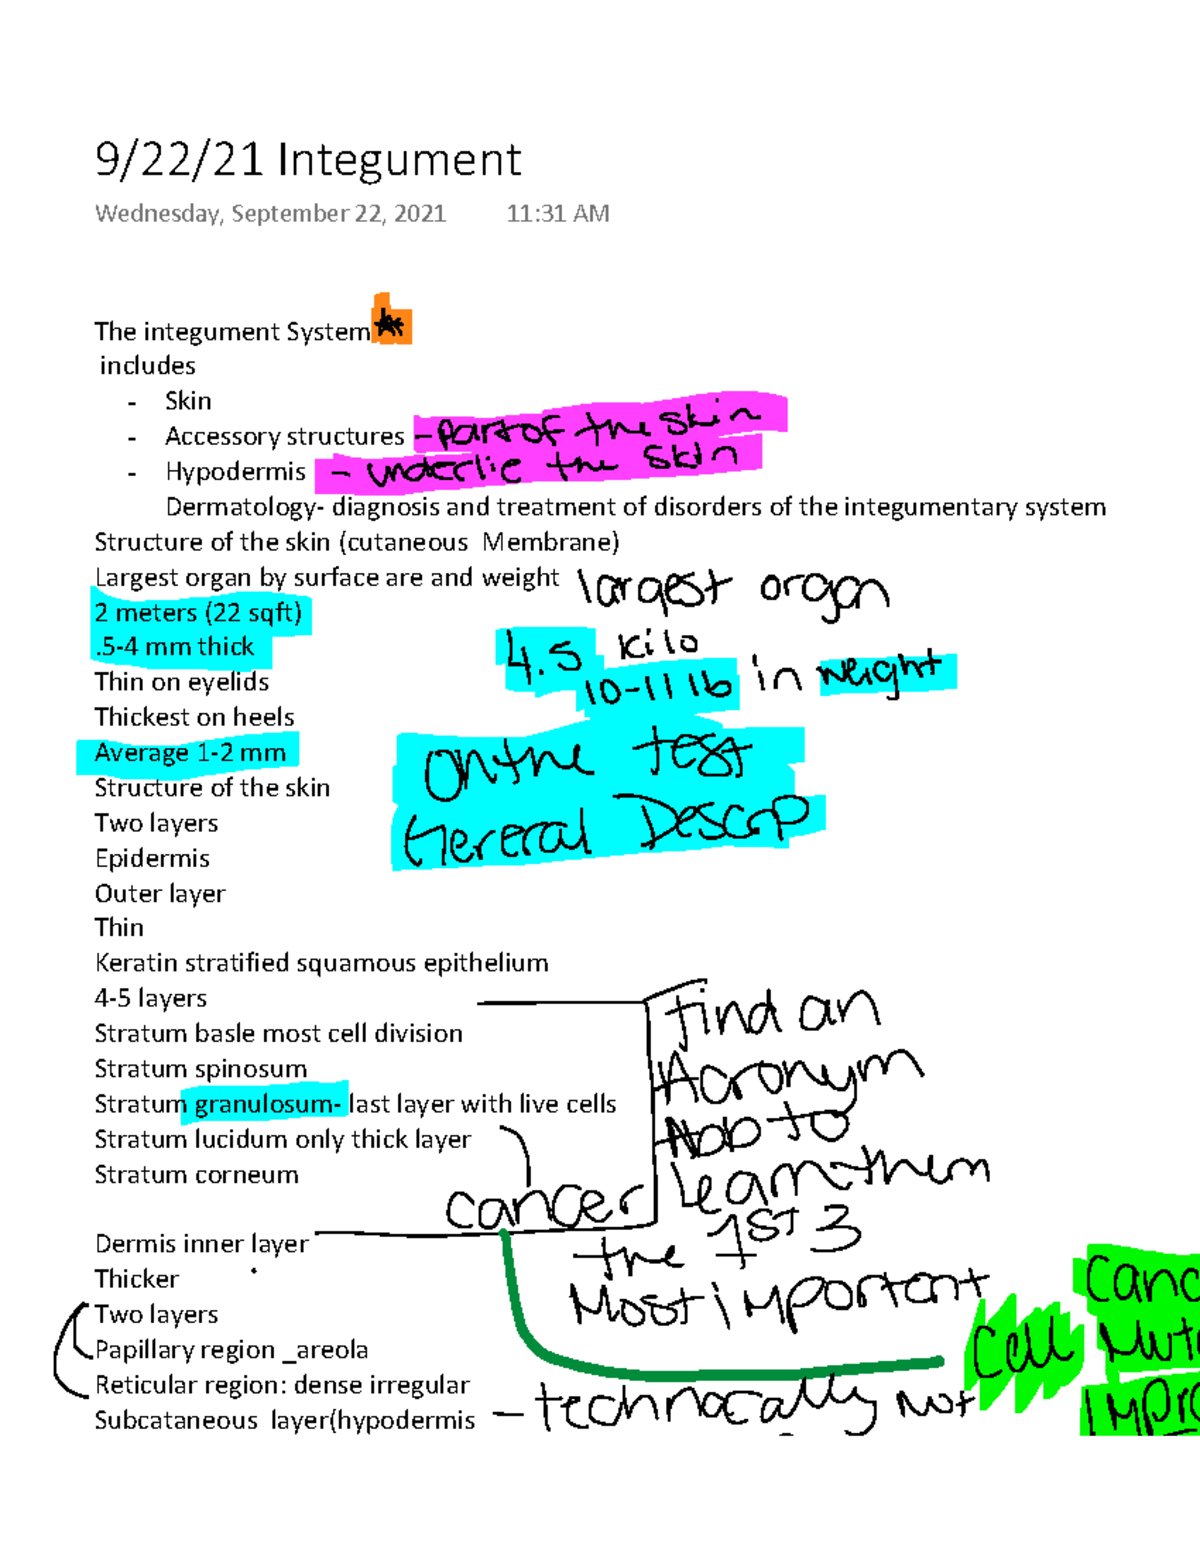 9/22/21 Integument
Wednesday, September 22, 2021 11:31 AM
The integument System
includes
- Skin
- Accessory structures - part of the skin
- Hypodermis - underlie the skin
Dermatology- diagnosis and treatment of disorders of the integumentary system
Structure of the skin (cutaneous Membrane)
Largest organ by surface are and weight largest organ
2 meters (22 sqft)
.5-4 mm thick 4.5 kilo
Thin on eyelids 10-11 lb in weight
Thickest on heels
Average 1-2 mm On the test
Structure of the skin
Two layers General Descrip
Epidermis
Outer layer
Thin
Keratin stratified squamous epithelium
4-5 layers Find an
Stratum basle most cell division
Stratum spinosum Acronym
Stratum granulosum- last layer with live cells
Stratum lucidum only thick layer to
Stratum corneum learn them
cancer the 1st 3
Dermis inner layer
Thicker Most important Canc
Two layers
Papillary region _areola Cell Mut
Reticular region: dense irregular
Subcataneous layer(hypodermis - technocally not Impro